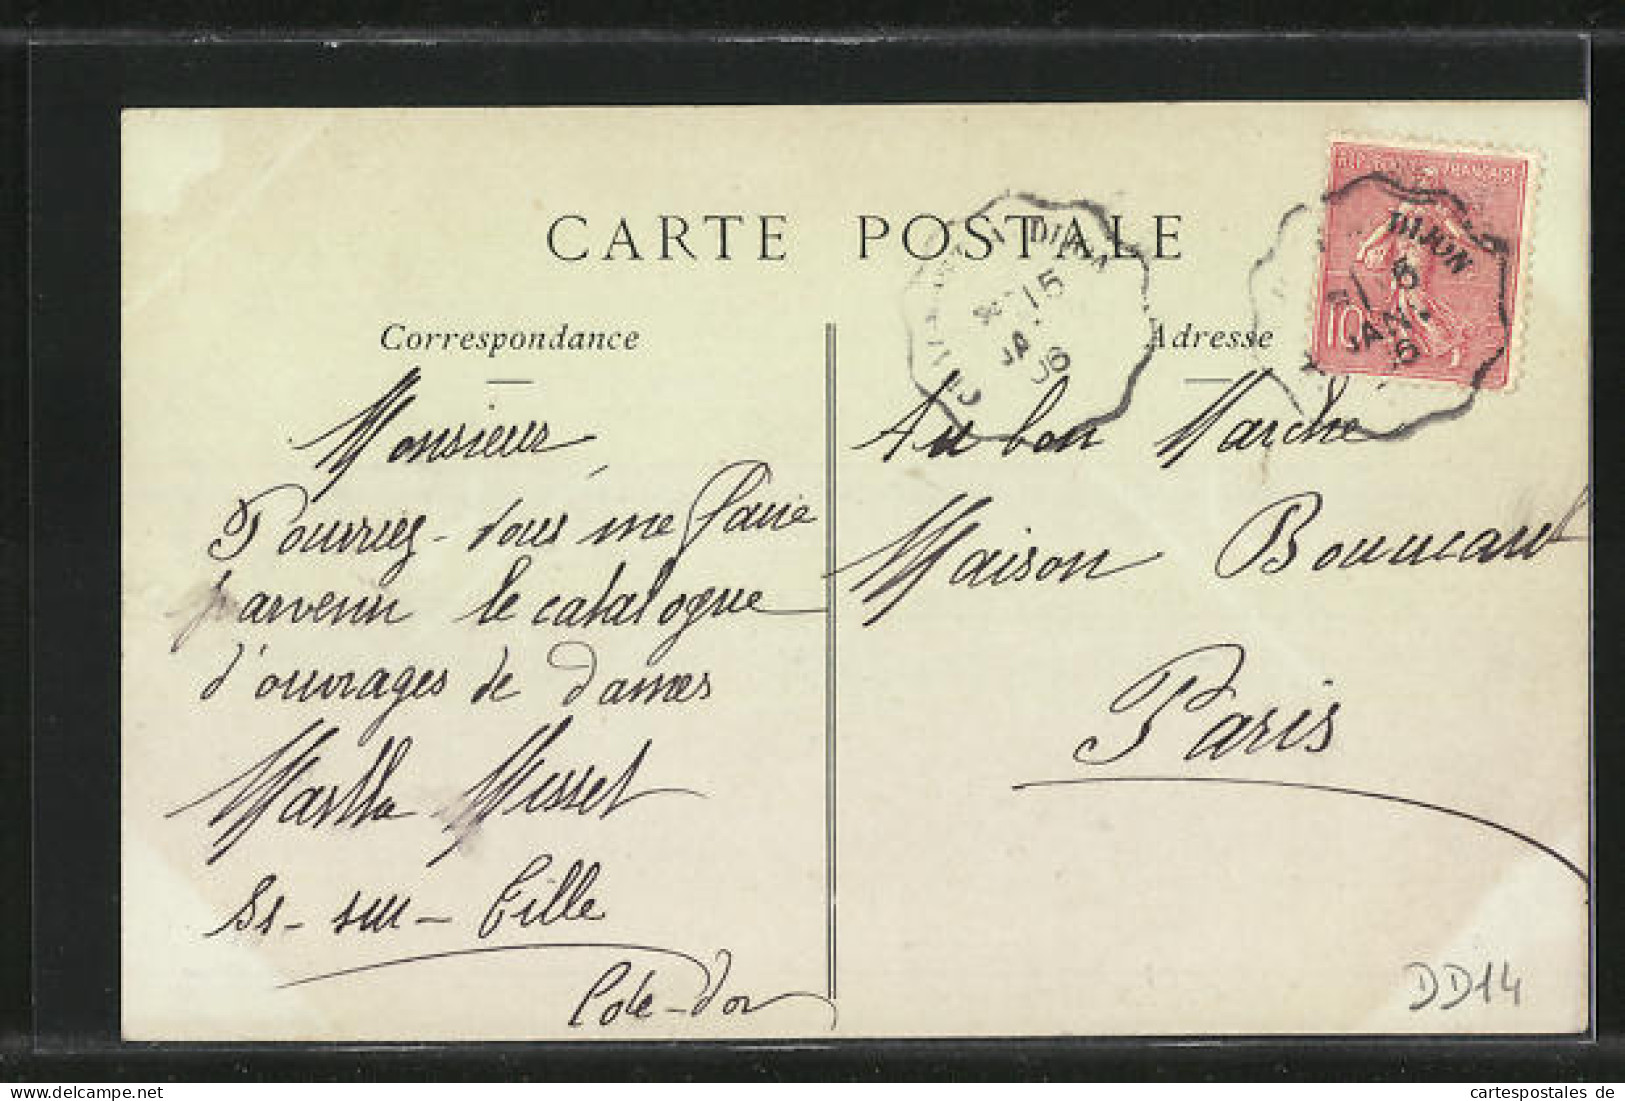 CARTE POSTALE
Correspondance
Monsieur
Pourriez-vous me faire
parvenir le catalogue
d'ouvrages de Dames
Marthe Misset
Is-sur-Tille
Côte-d'or
Adresse
Au bon Marché
Maison Boucicaut
Paris
REPUBLIQUE FRANÇAISE
10
DIJON
15
JANV
06
DIJON
15
JA
06
DD14
cartespostales de